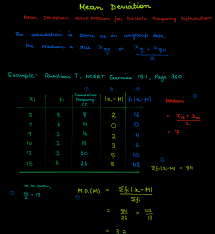 Mean Deviation
Mean Deviation about Median for Discrete Frequency Distribution
The calculation is same as in ungrouped data.
The median is still
Example: Question 7, NCERT Exercise 15.1, Page 360
xᵢ fᵢ Cumulative Frequency CF |xᵢ-M| fᵢ|xᵢ-M|
5 8 8 2 16
7 6 14 0 0
9 2 16 2 4
10 2 18 3 6
12 2 20 5 10
15 6 26 8 48
Median
= 7
Σfᵢ|xᵢ-M| = 84
n is even,
M.D.(M) = Σfᵢ|xᵢ-M| / Σfᵢ
= 84/26 = 42/13
= 3.2